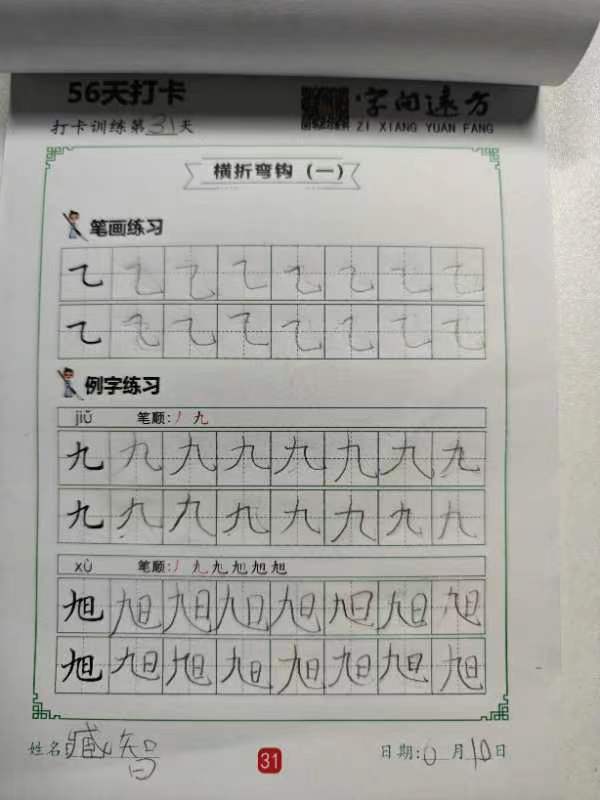 56天打卡
字间远方
打卡训练第31天
ZI XIANG YUAN FANG
横折弯钩（一）
笔画练习
例字练习
jiǔ 笔顺：丿 九
九 九 九 九 九 九 九 九
九 九 九 九 九 九 九 九
xù 笔顺：丿 九 九 旭 旭 旭
旭 旭 旭 旭 旭 旭 旭 旭
旭 旭 旭 旭 旭 旭 旭 旭
姓名 臧智
日期：0月10日
31